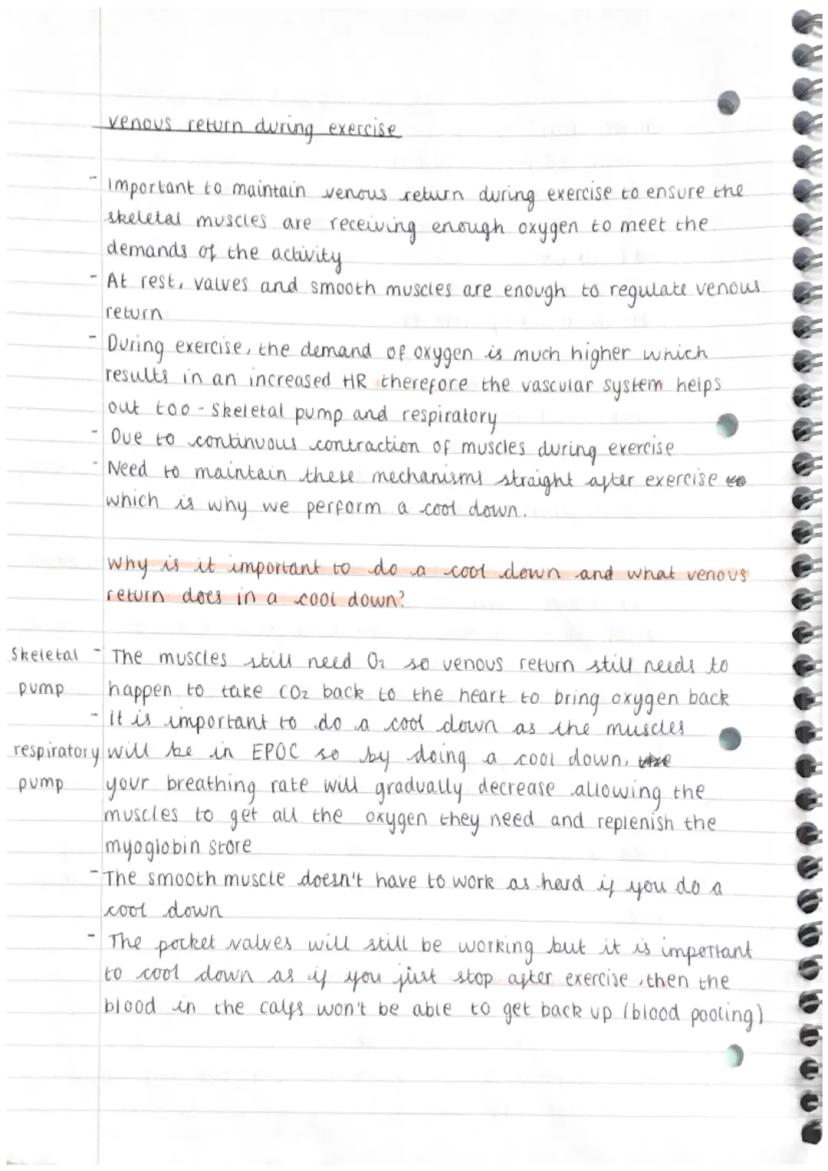 venous return during exercise
- Important to maintain venous return during exercise to ensure the
skeletal muscles are receiving enough oxygen to meet the
demands of the activity
- At rest, valves and smooth muscles are enough to regulate venous
return
- During exercise, the demand of oxygen is much higher which
results in an increased HR therefore the vascular system helps
out too - skeletal pump and respiratory
- Due to continuous contraction of muscles during exercise
- Need to maintain these mechanisms straight after exercise
which is why we perform a cool down.
Why is it important to do a cool down and what venous
return does in a cool down?
Skeletal - The muscles still need O2 so venous return still needs to
pump happen to take CO2 back to the heart to bring oxygen back
- It is important to do a cool down as the muscles
respiratory will be in EPOC so by doing a cool down,
pump your breathing rate will gradually decrease allowing the
muscles to get all the oxygen they need and replenish the
myoglobin store
- The smooth muscle doesn't have to work as hard if you do a
cool down
- The pocket valves will still be working but it is important
to cool down as if you just stop after exercise, then the
blood in the calfs won't be able to get back up (blood pooling)